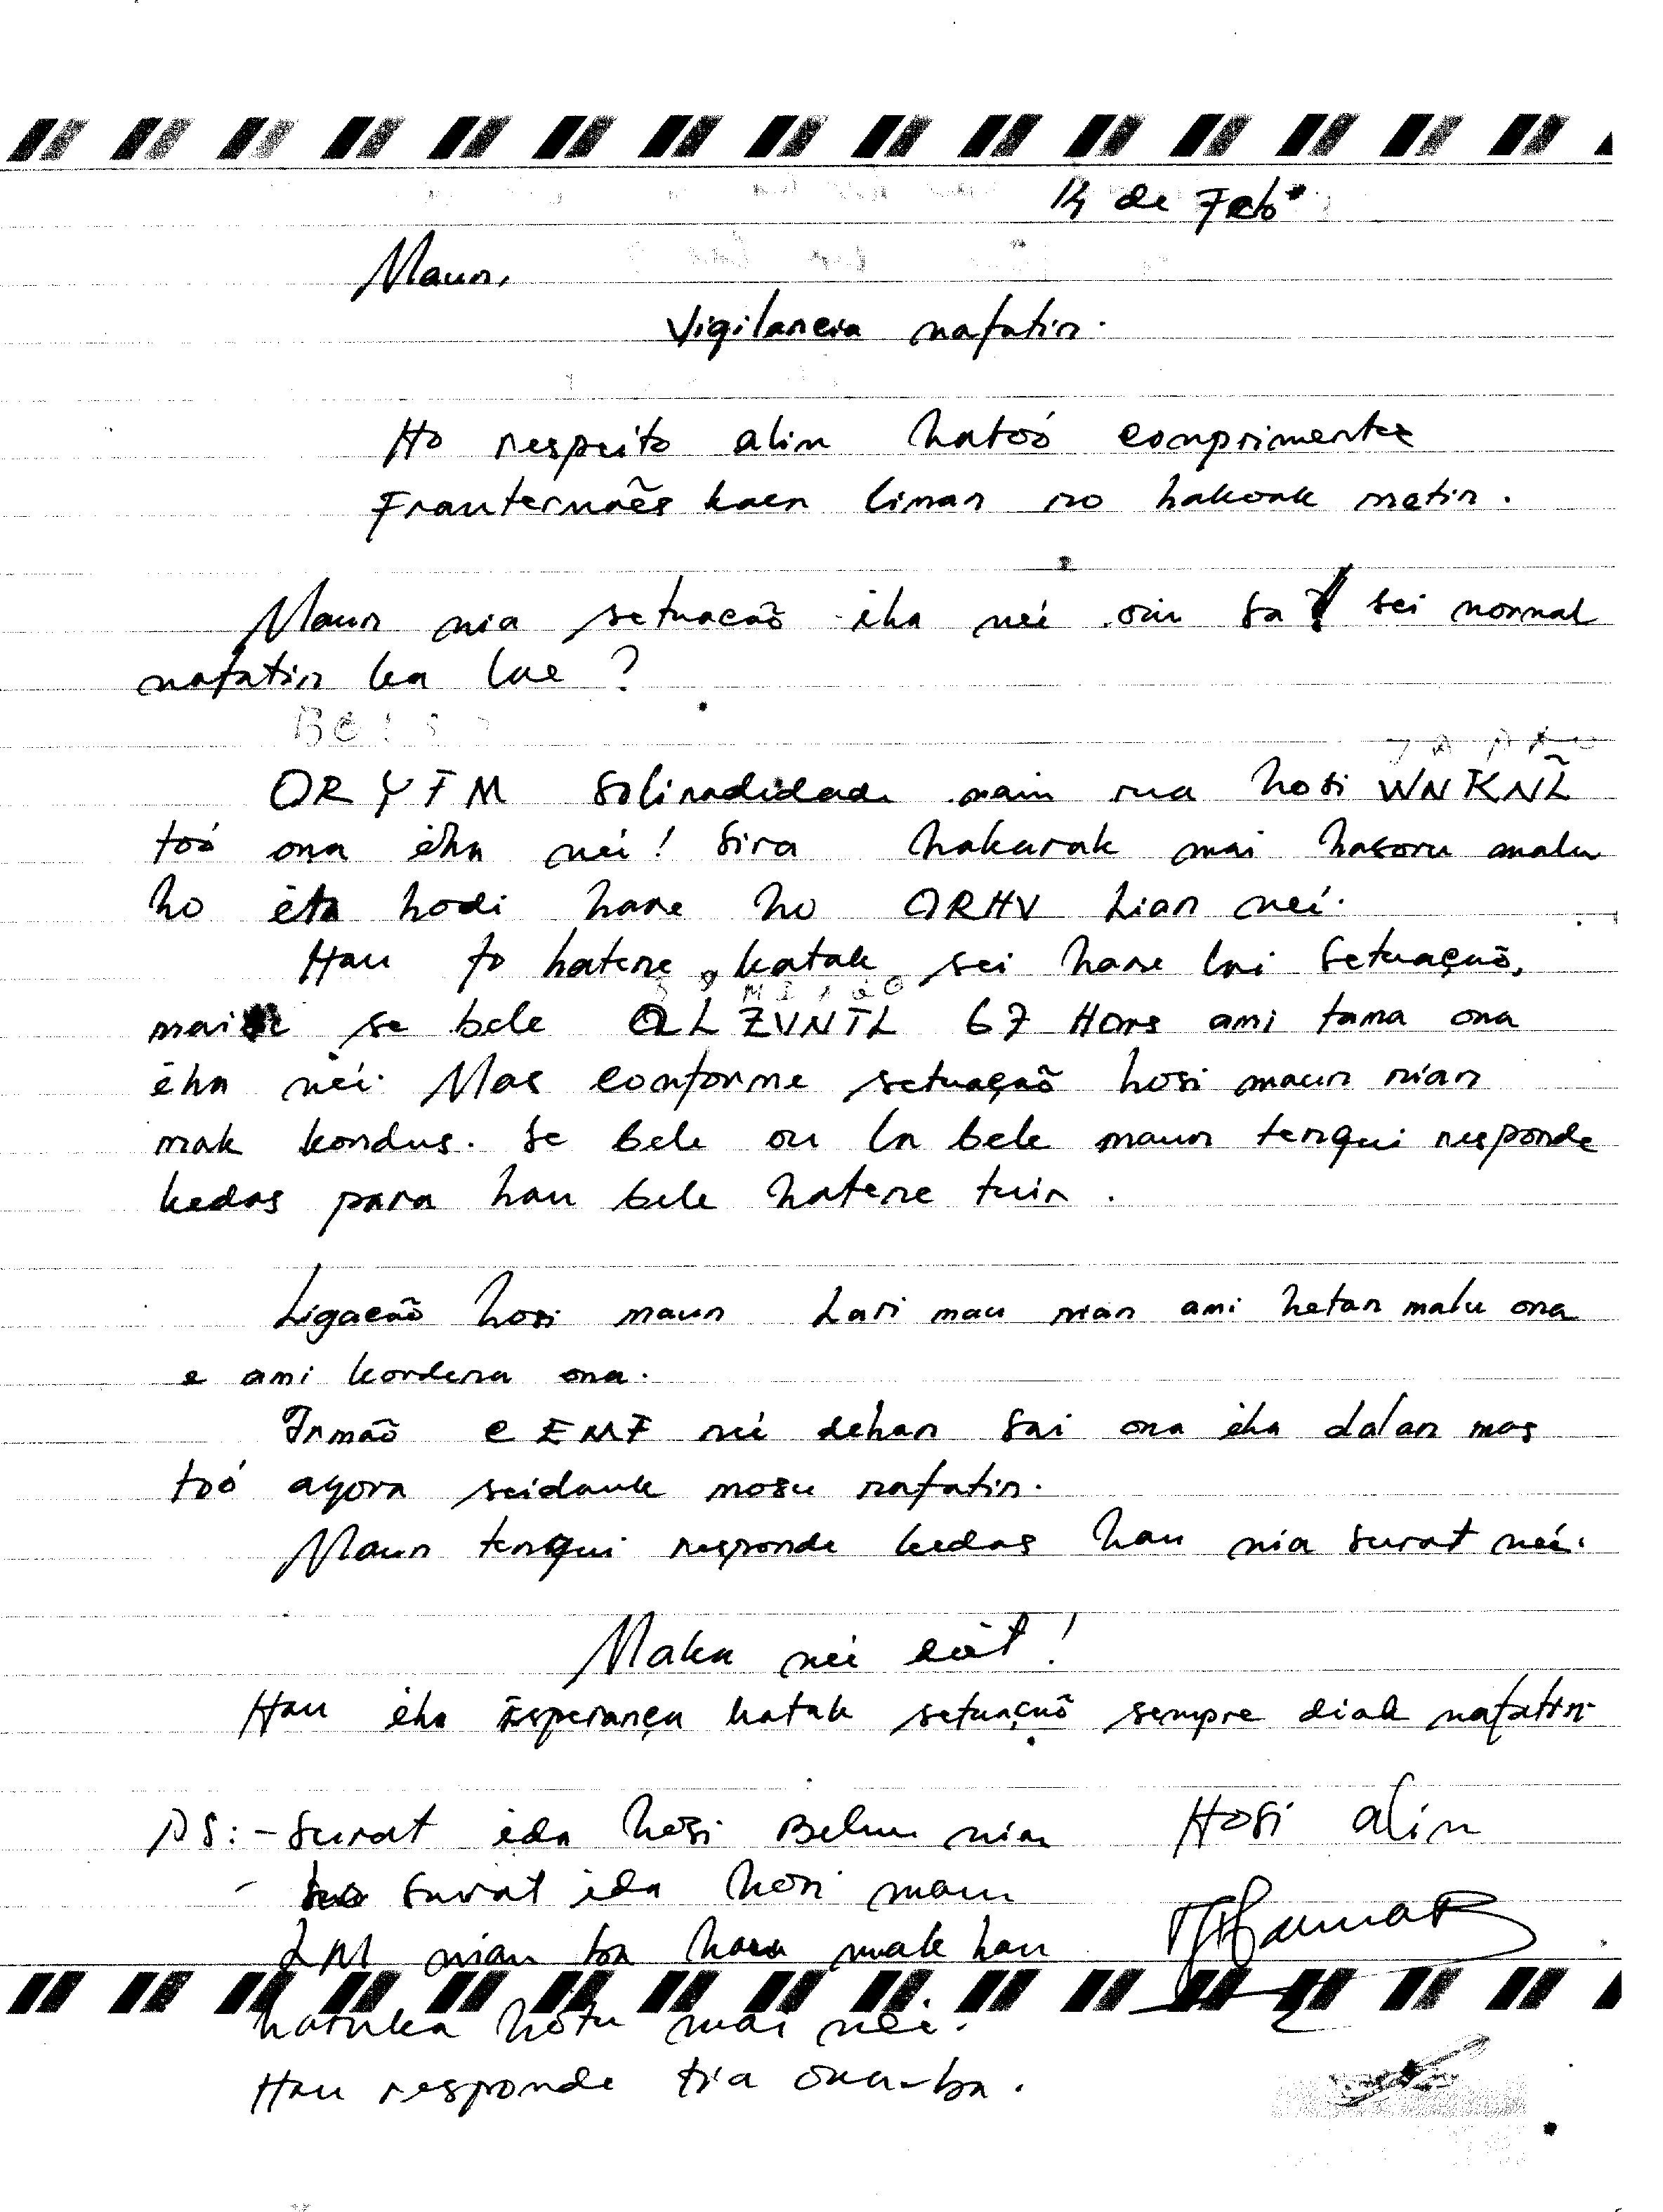 14 de Feb
Maun,
Vigilancia nafatin.
Ho respeito alin hatoó comprimentos
Frauternães kaer liman no hakoak metin.
Maun nia setuacaõ iha neí oin sa sei normal
nafatin ka lae ?
ORYFM Soliradidade nain rua hosi WNKNÃL
toó ona iha neí! Sira hakarak mai hasoru malu
ho ita hodi hare ho QRHV Lian neí.
Hau fo hatene katak sei hare lai Setuaçaõ,
mais se bele QLZVNTL 67 Hors ami tama ona
iha neí. Mas conforme setuaçaõ hosi maun nian
mak kondus. Se bele ou la bele maun tenqui responde
kedas para hau bele hatene tuir.
Ligacaõ hosi maun Lari mau nian ami hetan malu ona
e ami kordena ona.
Irmaõ CEMF neí dehan sai ona iha dalan mas
toó agora seidauk mosu nafatin.
Maun tenqui responde kedas hau nia surat neí.
Maka neí eit!
Hau iha Esperança katak setuaçaõ sempre diak nafatin
PS: - Surat ida hosi Belun nian Hosi alin
- surat ida hosi maun
LM nian ba hau mak hau
hatuka hotu mai neí.
Hau responde tia ona ba.